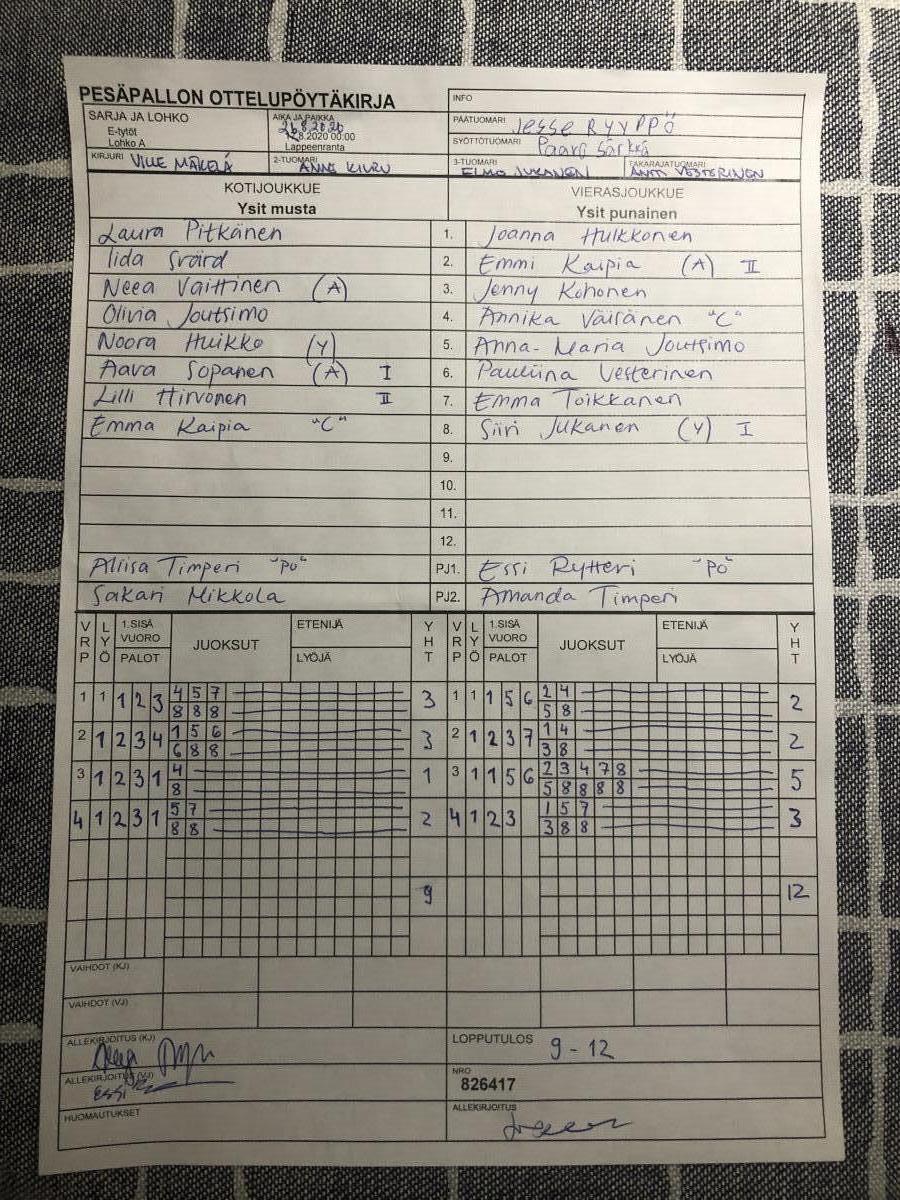 PESÄPALLON OTTELUPÖYTÄKIRJA
INFO
SARJA JA LOHKO
E-tytöt
Lohko A
AIKA JA PAIKKA
26.8.2020
.8.2020 00:00
Lappeenranta
PÄÄTUOMARI Jesse RYYPPÖ
SYÖTTÖTUOMARI Särkkä
KIRJURI VILLE MÄKELÄ
2-TUOMARI ANNE KIURU
3-TUOMARI ELMO JUKANEN
TAKARAJATUOMARI ANTTI VESTERINEN
KOTIJOUKKUE
Ysit musta
VIERASJOUKKUE
Ysit punainen
Laura Pitkänen 1. Joanna Hulkkonen
Iida Svärd 2. Emmi Kaipia (A) II
Neea Vaittinen (A) 3. Jenny Kohonen
Olivia Joutsimo 4. Annika Väisänen "C"
Noora Huikko (Y) 5. Anna-Maria Joutsimo
Aava Sopanen (A) I 6. Pauliina Vesterinen
Lilli Hirvonen II 7. Emma Toikkanen
Emma Kaipia "C" 8. Siiri Jukanen (Y) I
9.
10.
11.
12.
Aliisa Timperi "PO" PJ1. Essi Rytteri "PO"
Sakari Mikkola PJ2. Amanda Timperi
VRP LYÖ 1.SISÄ VUORO PALOT JUOKSUT ETENIJÄ LYÖJÄ YHT VRP LYÖ 1.SISÄ VUORO PALOT JUOKSUT ETENIJÄ LYÖJÄ YHT
1 1 1 2 3 4 5 7 3 1 1 1 5 6 2 4 2
8 8 8 5 8
2 1 2 3 4 1 5 6 3 2 1 2 3 7 1 4 2
6 8 8 3 8
3 1 2 3 1 4 1 3 1 1 5 6 2 3 4 7 8 5
8 5 8 8 8 8
4 1 2 3 1 5 7 2 4 1 2 3 1 5 7 3
8 8 3 8 8
9 12
VAIHDOT (KJ)
VAIHDOT (VJ)
ALLEKIRJOITUS (KJ)
LOPPUTULOS 9 - 12
ALLEKIRJOITUS (VJ) Essi
NRO
826417
HUOMAUTUKSET
ALLEKIRJOITUS